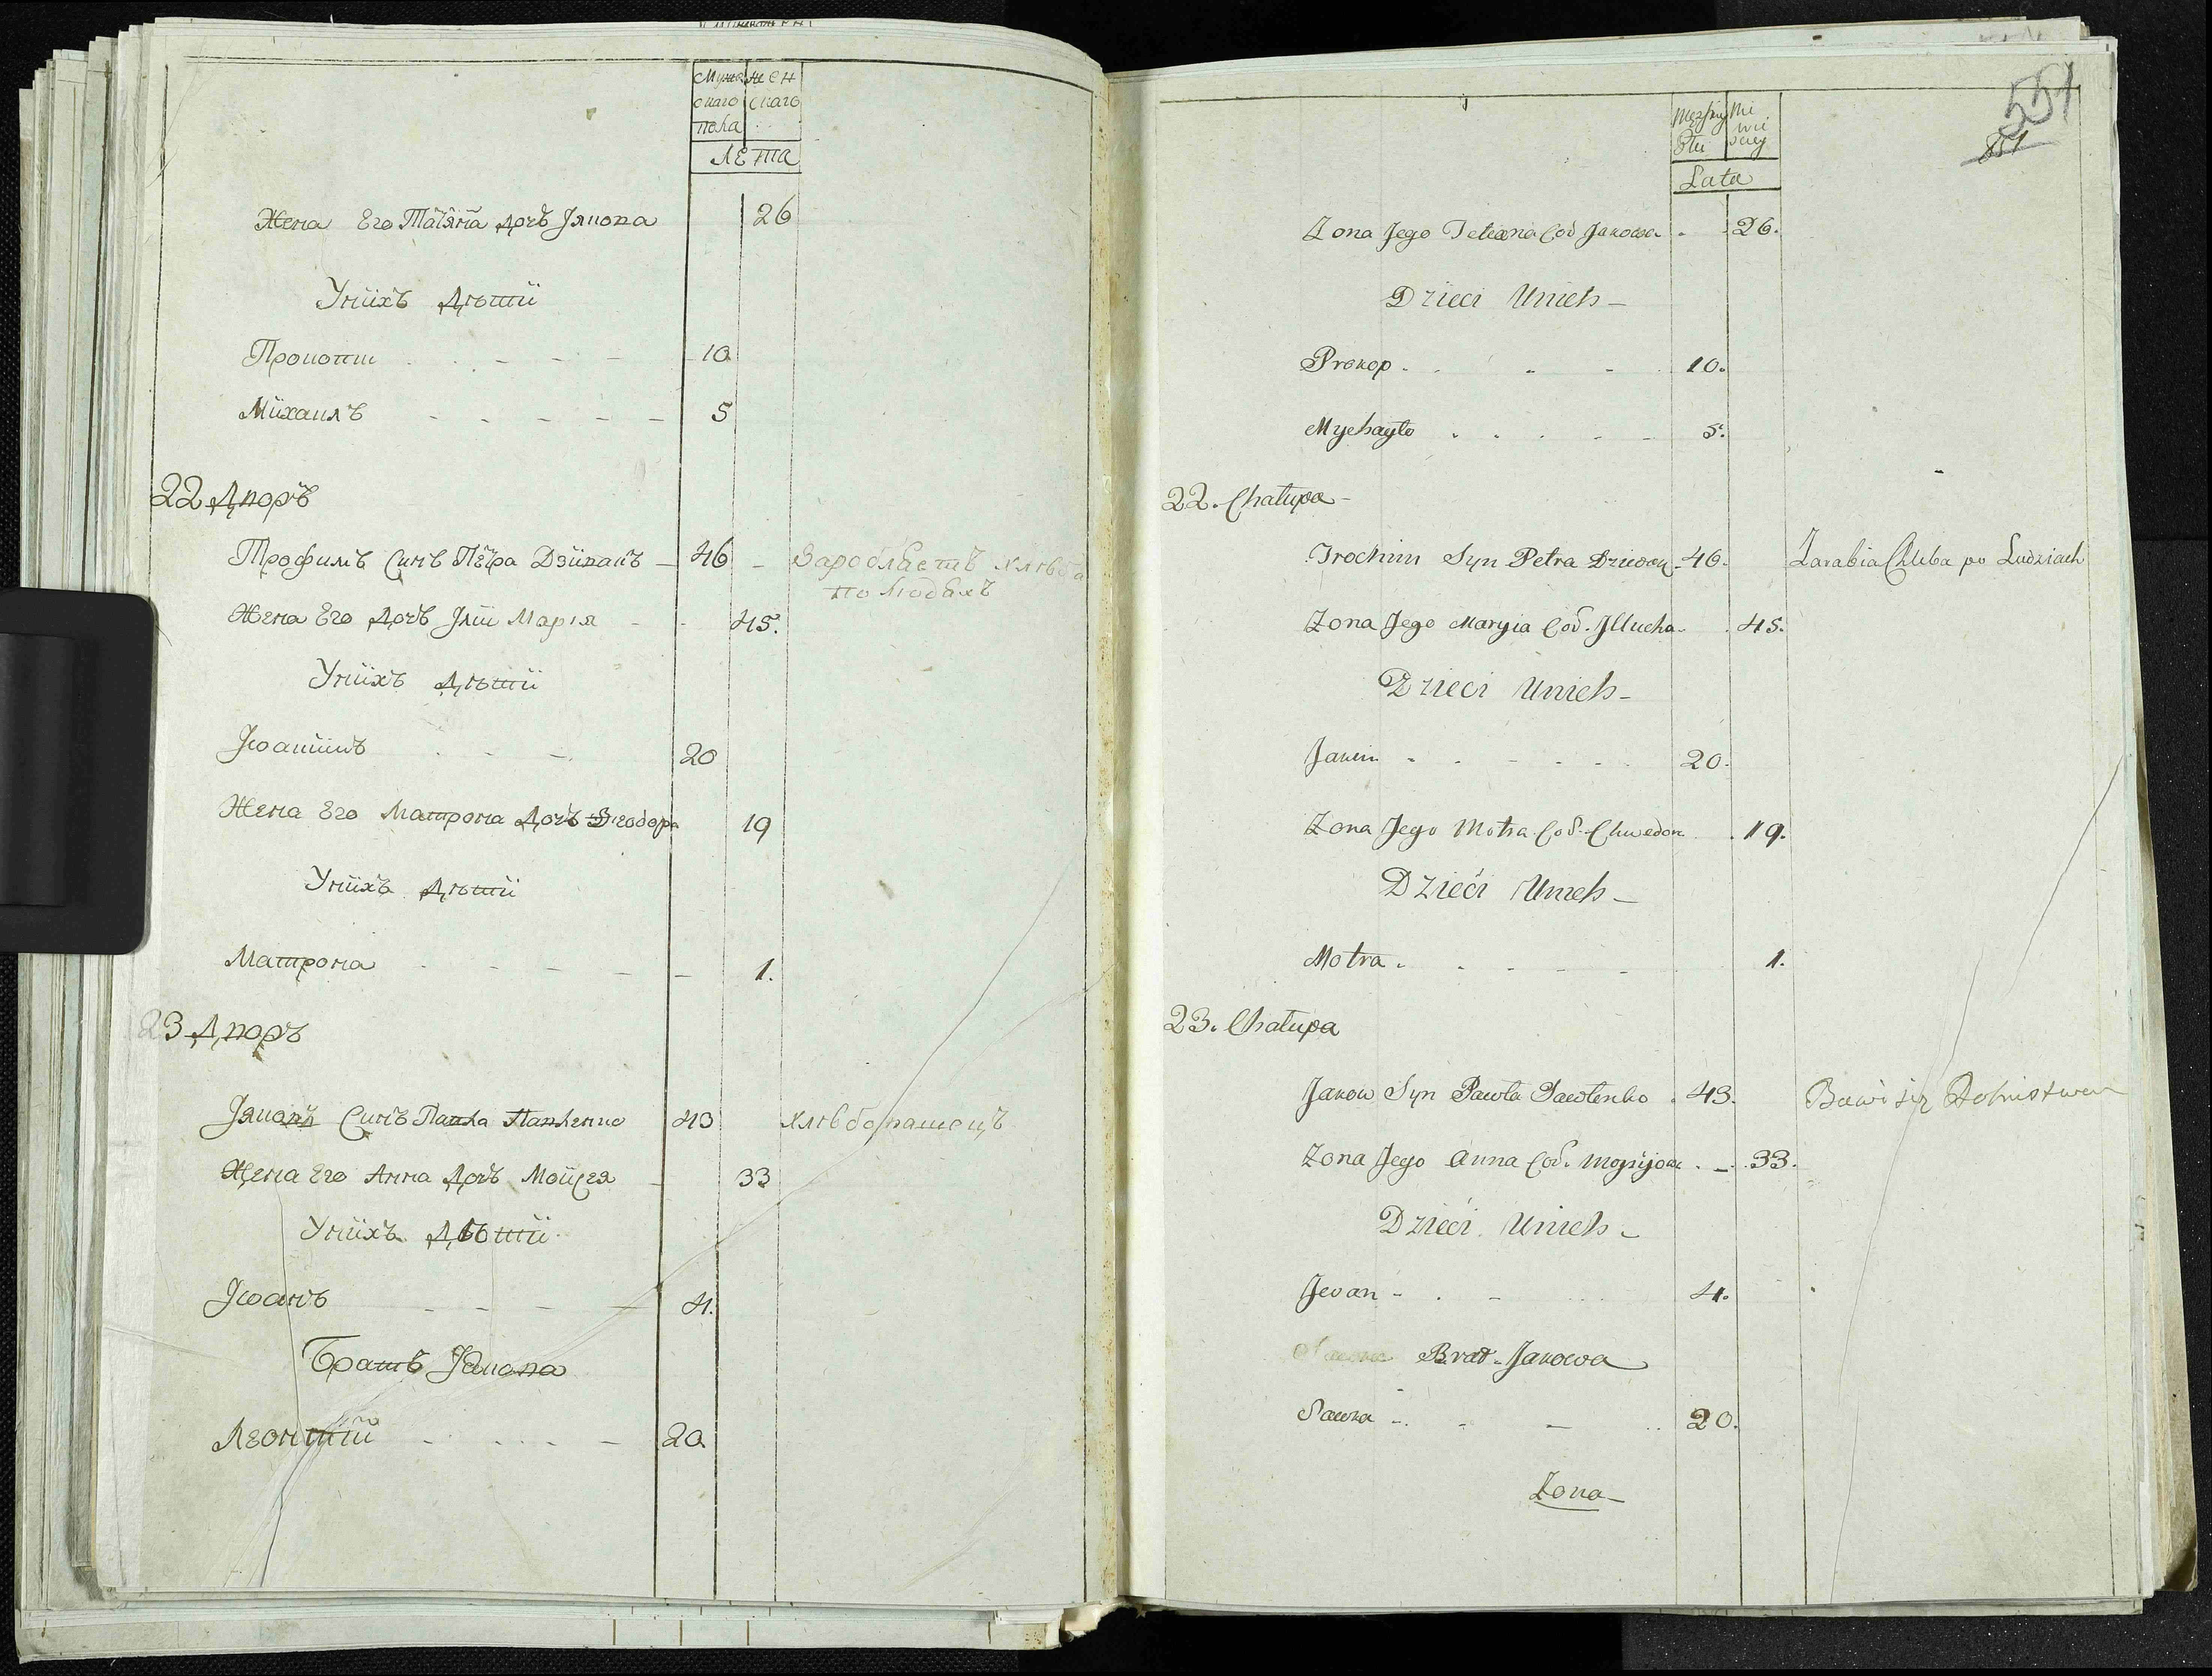 Мужескаго пола
Женскаго
Лета
Жена Его Татїяна дочъ Якова 26
У нихъ дѣтїи
Прокопїи 10
Мїхаилъ 5
22 Дворъ
Трофимъ Синъ Петра Дзїкапъ 46 Заробляетъ хлѣба
по людяхъ
Жена Его дочъ Илїи Марїя 45.
У нихъ дѣтїи
Іоакимъ 20
Жена Его Матрона Дочъ Ѳеодора 19
У нихъ дѣтїи
Матрона 1.
23 Дворъ
Яковъ Синъ Павла Павленко 43 хлѣбопашецъ
Жена Его Анна Дочъ Мойсея 33
У нихъ дѣтїи
Іоанъ 4.
Братъ Якова
Леонтїй 20
551
Męzkiey Płci
Lata
Zona Jego Tetiana Cod Jakowa 26.
Dzieci Unich
Prokop 10.
Mychayło 5.
22. Chałupa
Trochim Syn Petra 46. Zarabia Chleba po Ludziach
Zona Jego Maryia Cod. Jllucha 45.
Dzieci Unich
Jakim 20.
Zona Jego Motra Cod. Chwedora 19.
Dzieci Unich
Motra 1.
23. Chałupa
Jakow Syn Pawła Pawlenko 43. Bawi się Rolnistwem
Zona Jego Anna Cod. 33.
Dzieci Unich
Jwan 4.
Brat Jakowa
20.
Zona